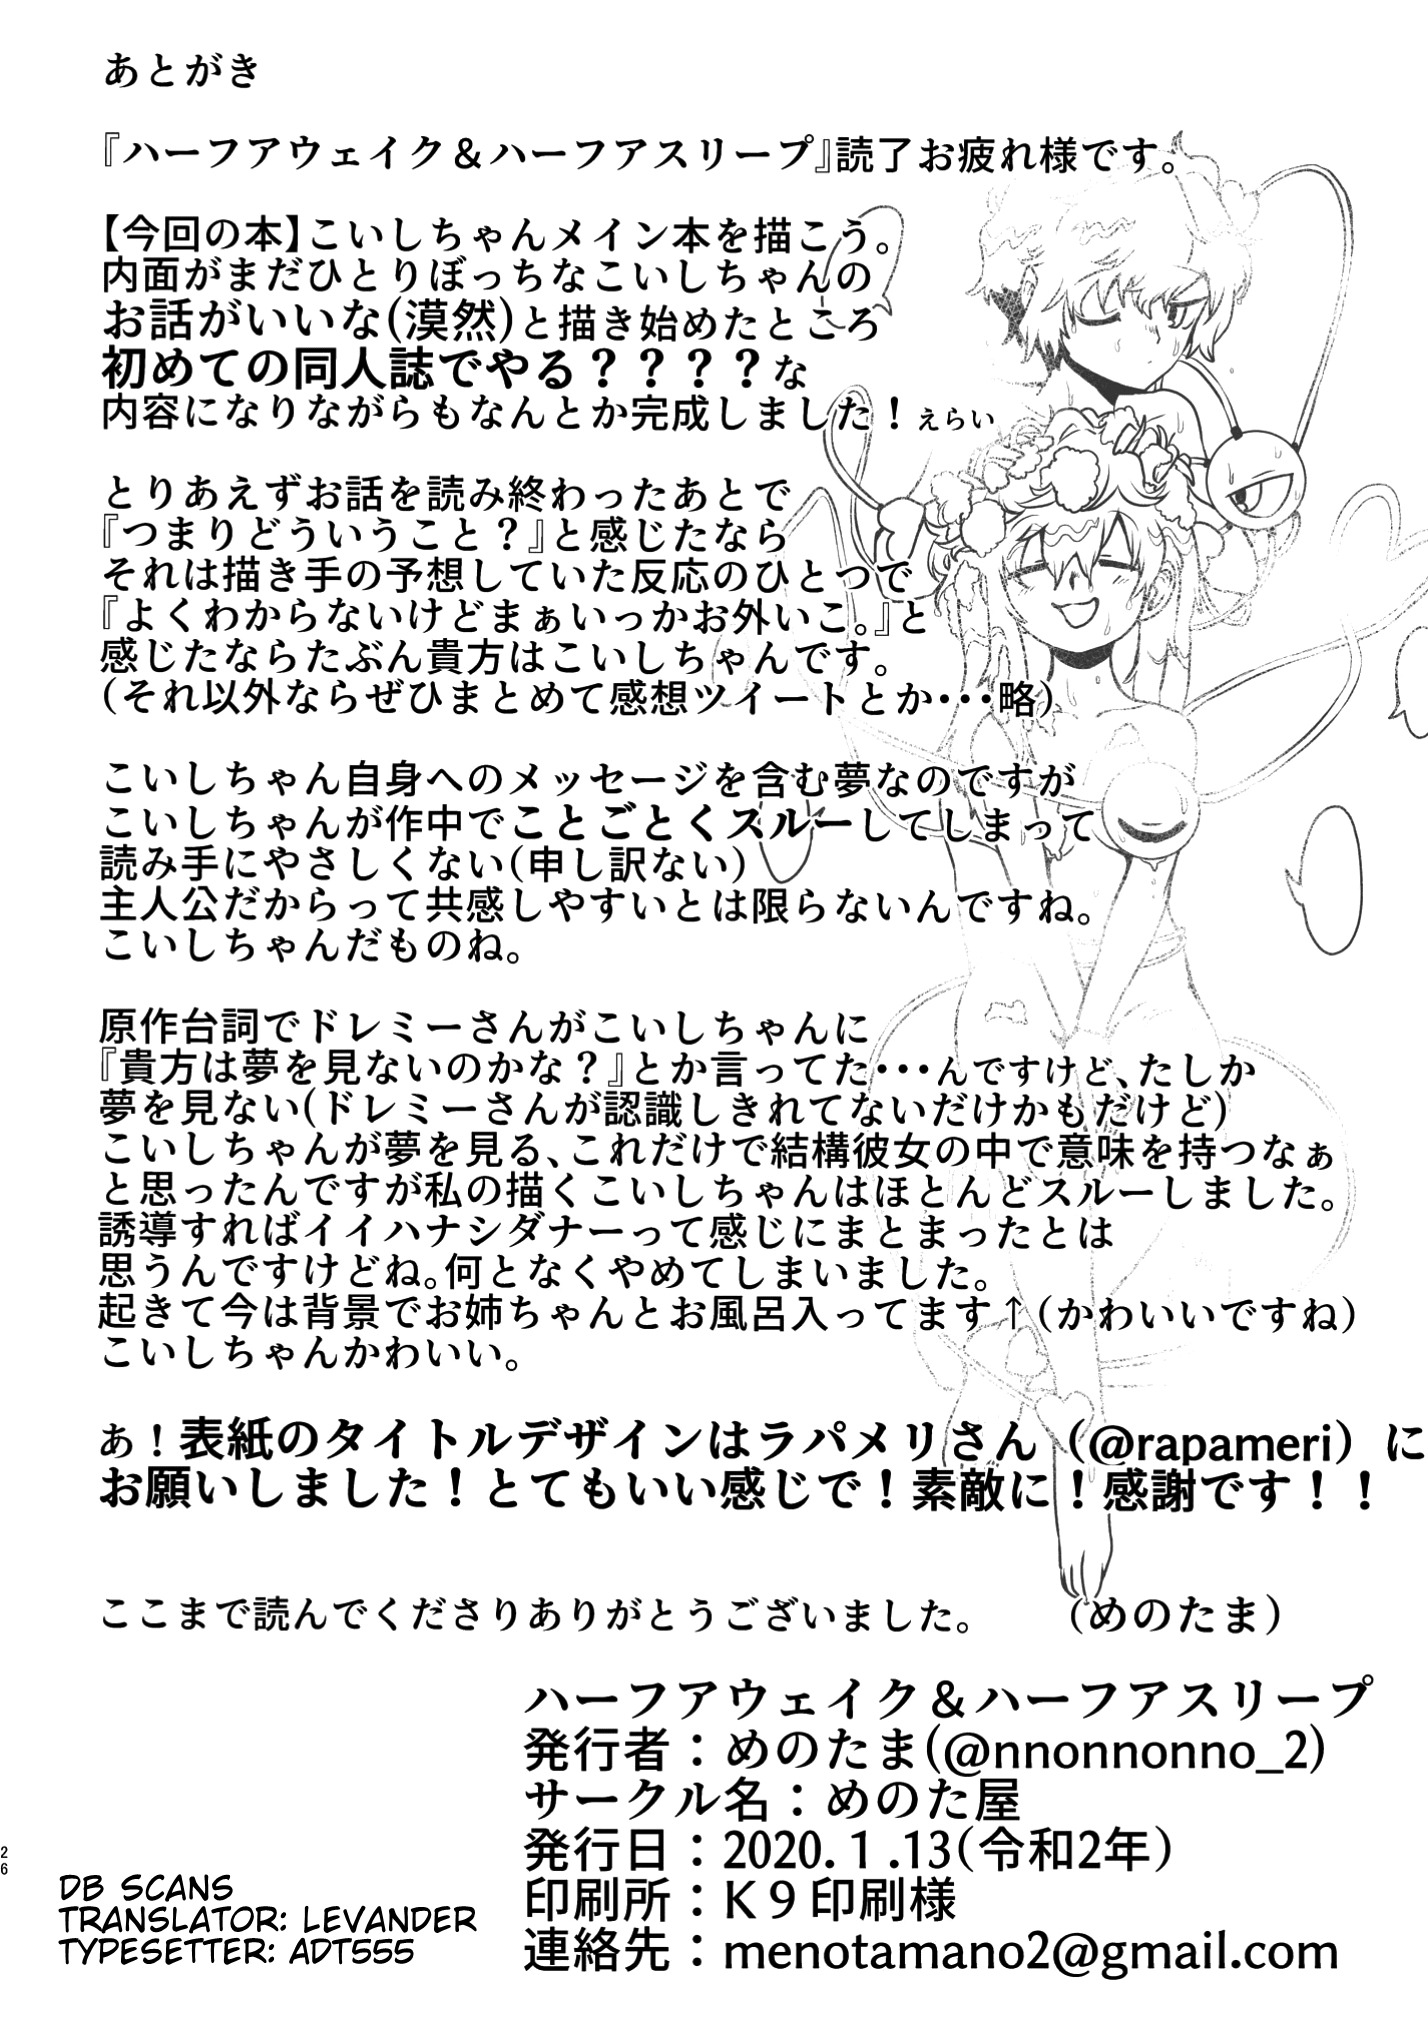 あとがき
『ハーフアウェイク＆ハーフアスリープ』読了お疲れ様です。
【今回の本】こいしちゃんメイン本を描こう。
内面がまだひとりぼっちなこいしちゃんの
お話がいいな(漠然)と描き始めたところ
初めての同人誌でやる？？？？な
内容になりながらもなんとか完成しました！えらい
とりあえずお話を読み終わったあとで
『つまりどういうこと？』と感じたなら
それは描き手の予想していた反応のひとつで
『よくわからないけどまぁいっかお外いこ。』と
感じたならたぶん貴方はこいしちゃんです。
(それ以外ならぜひまとめて感想ツイートとか・・・略)
こいしちゃん自身へのメッセージを含む夢なのですが
こいしちゃんが作中でことごとくスルーしてしまって
読み手にやさしくない(申し訳ない)
主人公だからって共感しやすいとは限らないんですね。
こいしちゃんだものね。
原作台詞でドレミーさんがこいしちゃんに
『貴方は夢を見ないのかな？』とか言ってた・・・んですけど、たしか
夢を見ない(ドレミーさんが認識しきれてないだけかもだけど)
こいしちゃんが夢を見る、これだけで結構彼女の中で意味を持つなぁ
と思ったんですが私の描くこいしちゃんはほとんどスルーしました。
誘導すればイイハナシダナーって感じにまとまったとは
思うんですけどね。何となくやめてしまいました。
起きて今は背景でお姉ちゃんとお風呂入ってます↑(かわいいですね)
こいしちゃんかわいい。
あ！表紙のタイトルデザインはラパメリさん（@rapameri）に
お願いしました！とてもいい感じで！素敵に！感謝です！！
ここまで読んでくださりありがとうございました。　（めのたま）
ハーフアウェイク＆ハーフアスリープ
発行者：めのたま(@nnonnonno_2)
サークル名：めのた屋
発行日：2020.１.13(令和2年)
印刷所：K９印刷様
連絡先：menotamano2@gmail.com
26
DB SCANS
TRANSLATOR: LEVANDER
TYPESETTER: ADT555